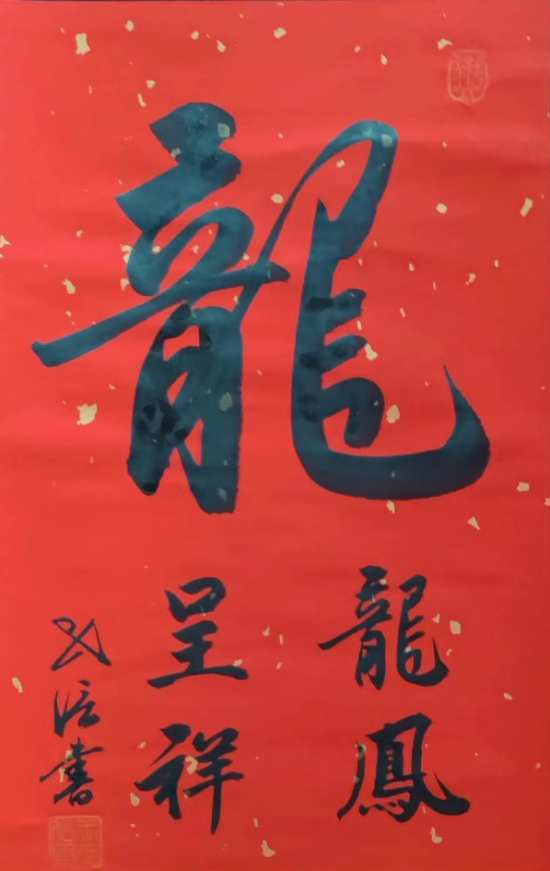 龍
龍鳳
呈祥
書